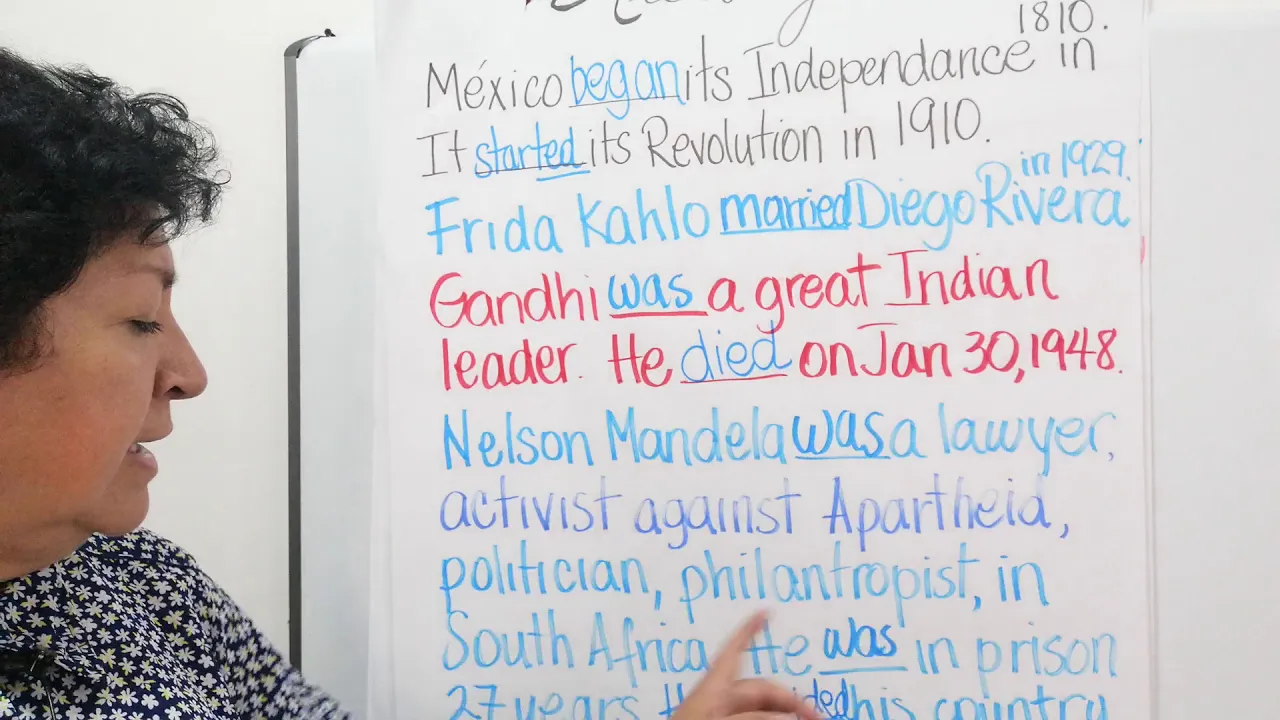 1810.
México began its Independance in
It started its Revolution in 1910.
in 1929.
Frida Kahlo married Diego Rivera
Gandhi was a great Indian
leader. He died on Jan 30, 1948.
Nelson Mandela was a lawyer,
activist against Apartheid,
politician, philantropist, in
South Africa He was in prison
27 years his country